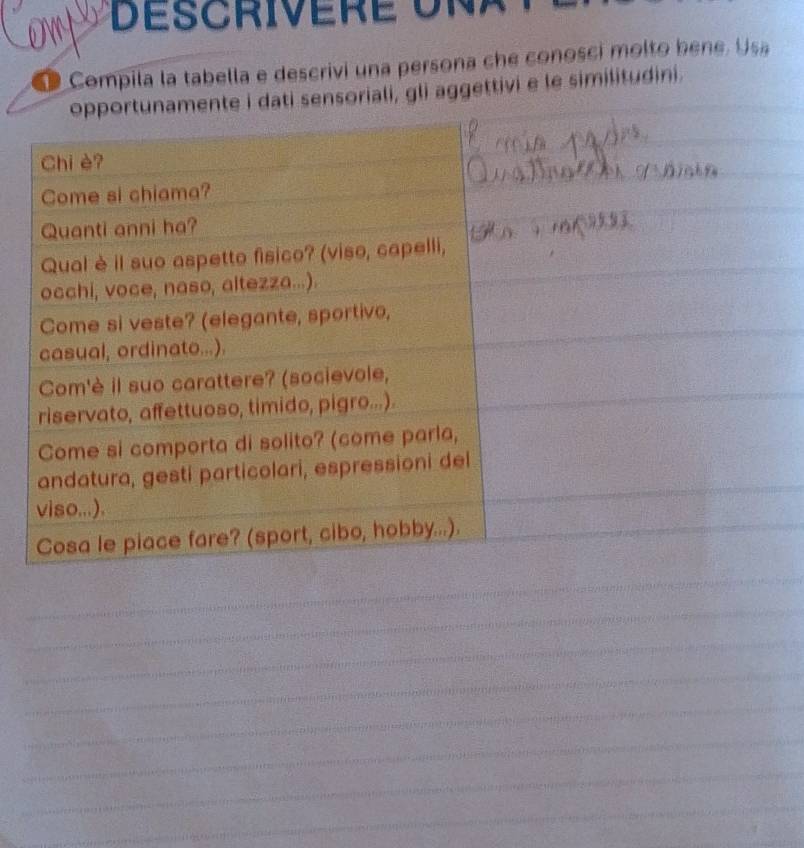 Compl
DESCRIVERE UNA
1 Compila la tabella e descrivi una persona che conosci molto bene. Usa
opportunamente i dati sensoriali, gli aggettivi e le similitudini.
Chi è?
È mio padre
Come si chiama?
Quanti anni ha?
Qual è il suo aspetto fisico? (viso, capelli,
occhi, voce, naso, altezza...).
Come si veste? (elegante, sportivo,
casual, ordinato...).
Com'è il suo carattere? (socievole,
riservato, affettuoso, timido, pigro...).
Come si comporta di solito? (come parla,
andatura, gesti particolari, espressioni del
viso...).
Cosa le piace fare? (sport, cibo, hobby...).